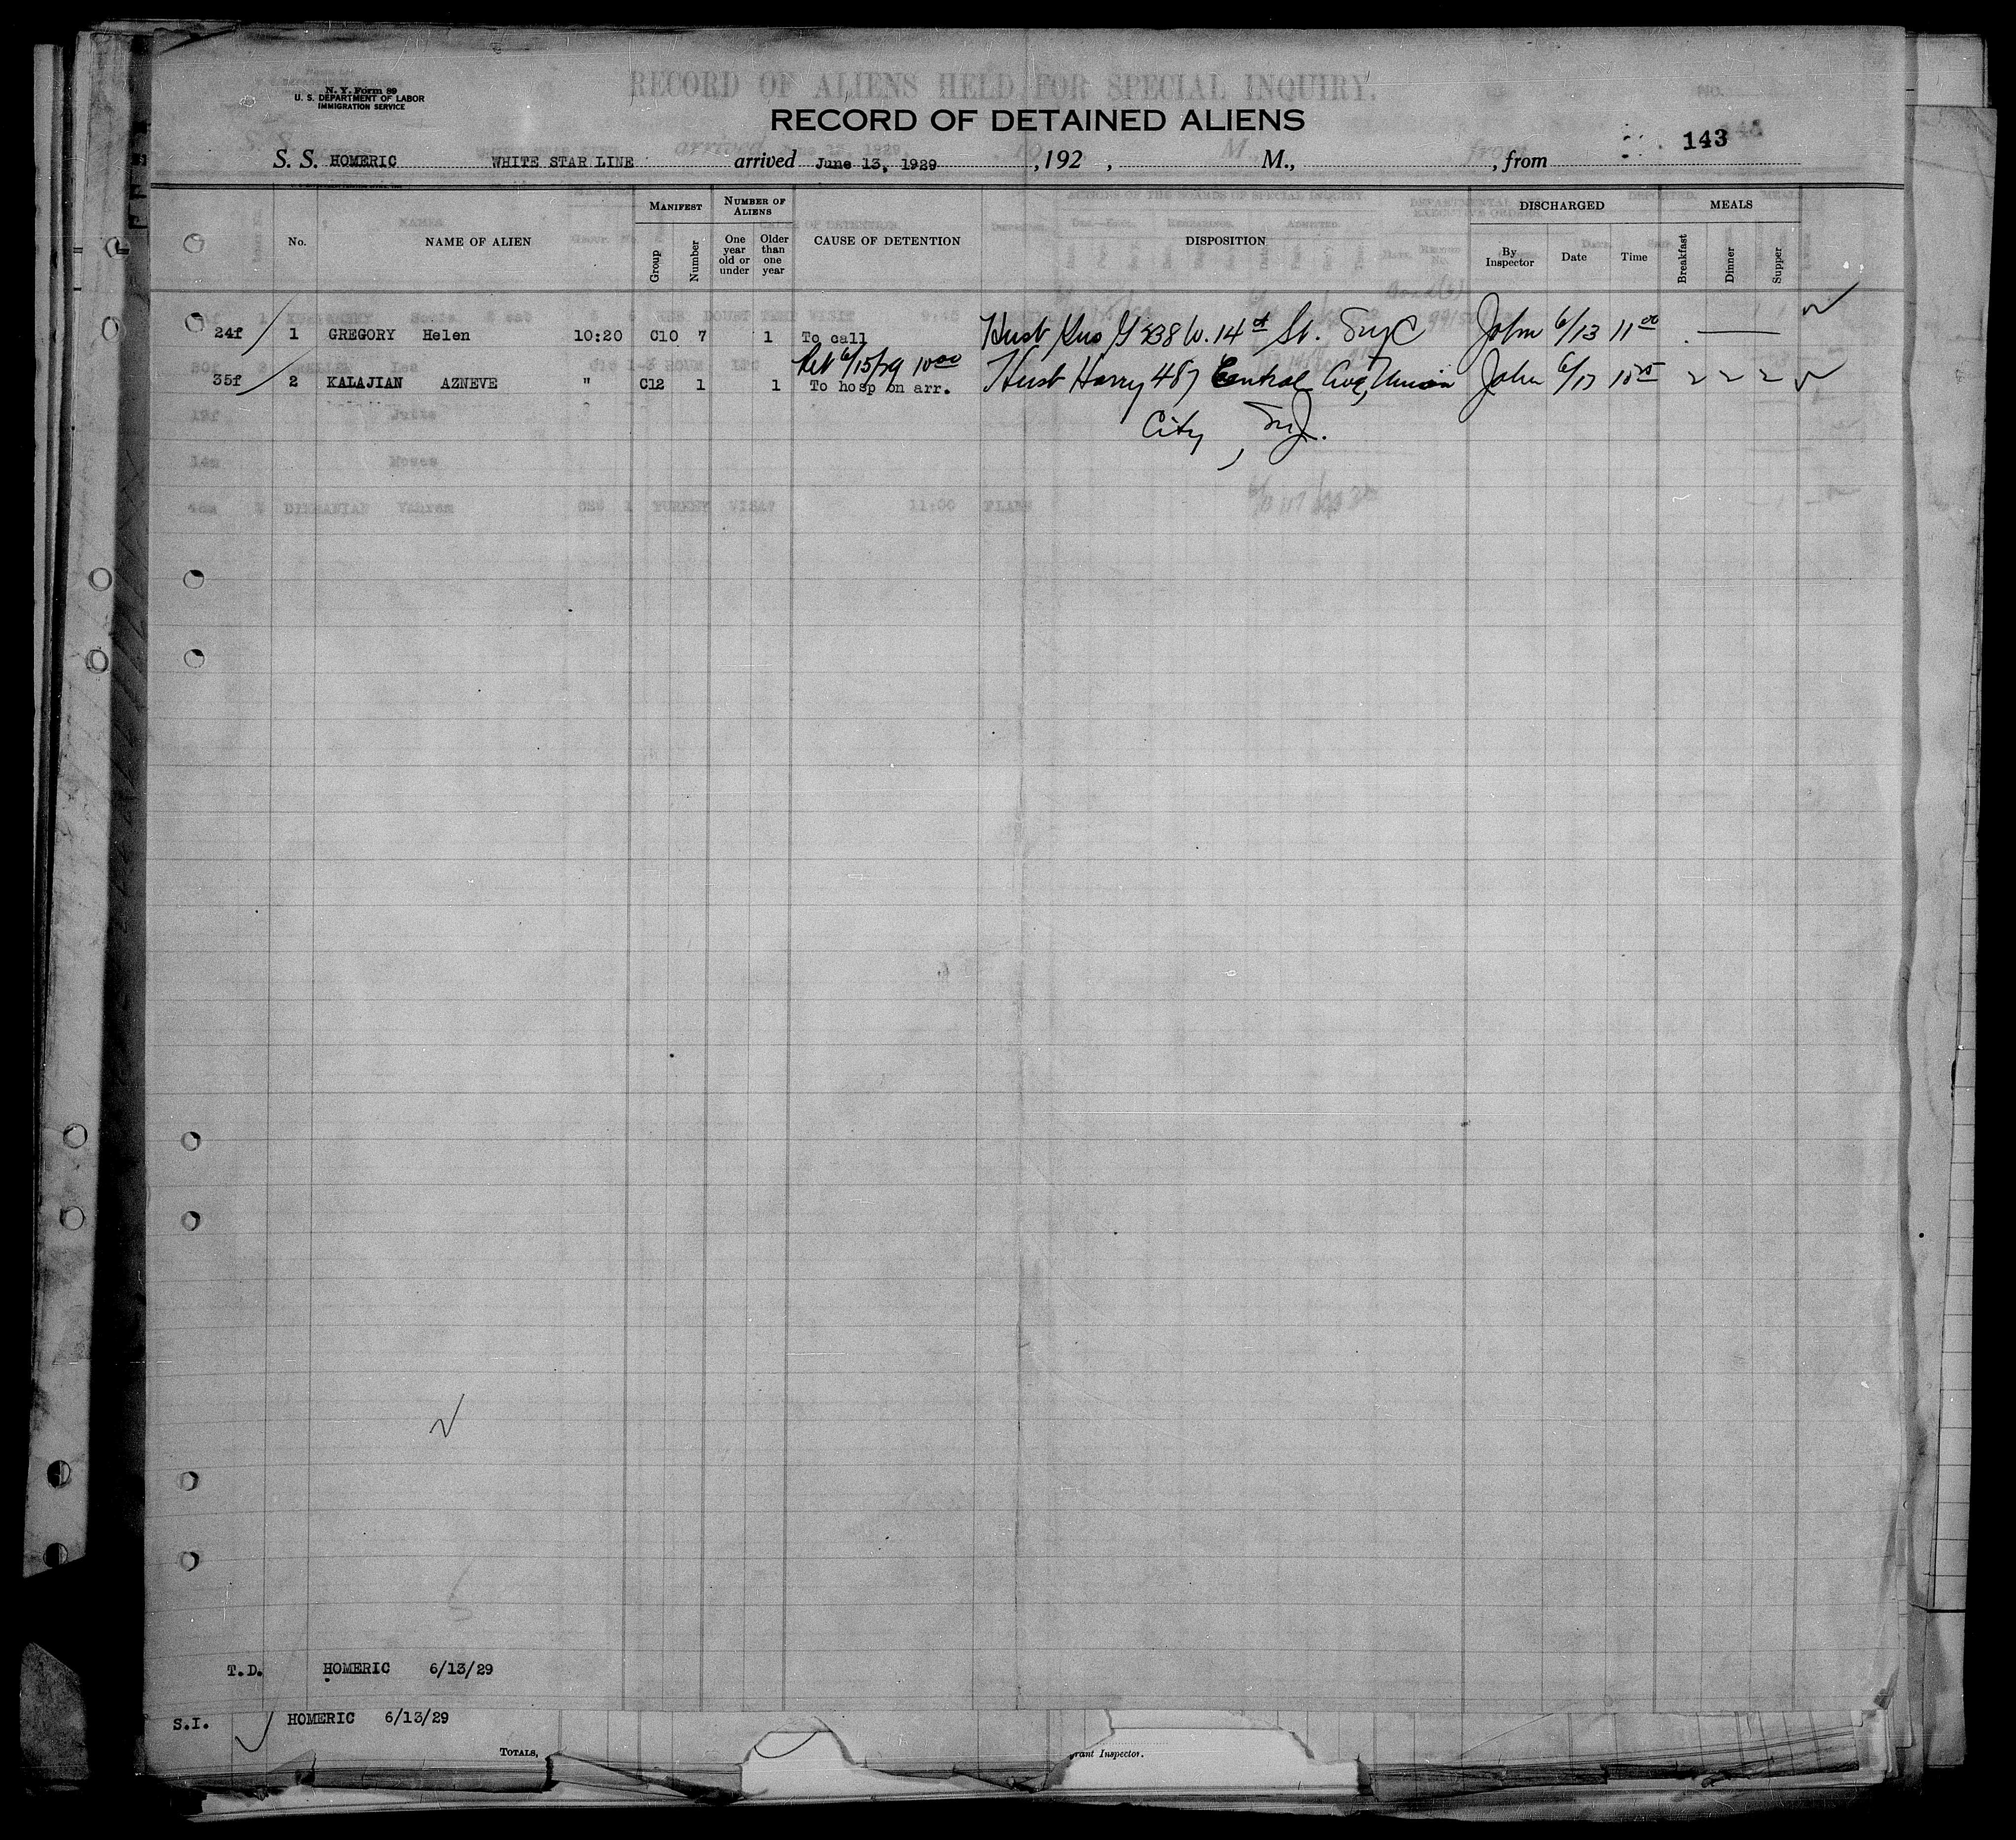 N. Y. Form 89
U. S. DEPARTMENT OF LABOR
IMMIGRATION SERVICE
RECORD OF ALIENS HELD FOR SPECIAL INQUIRY.
RECORD OF DETAINED ALIENS
143
S. S. HOMERIC WHITE STAR LINE arrived June 13, 1929, 192 , M., , from
No. NAME OF ALIEN MANIFEST Group Number NUMBER OF ALIENS One year old or under Older than one year CAUSE OF DETENTION DISPOSITION DISCHARGED By Inspector Date Time MEALS Breakfast Dinner Supper
24f 1 GREGORY Helen 10:20 C10 7 1 To call Husb Gus G 238 W. 14 St. NYC John 6/13 11 00
Ret 6/15/29 10 00
35f 2 KALAJIAN AZNEVE " C12 1 1 To hosp on arr. Husb Harry 487 Central Ave, Union John 6/17 10 2 2 2
City, N.J.
T.D. HOMERIC 6/13/29
S.I. HOMERIC 6/13/29
TOTALS,
grant Inspector.